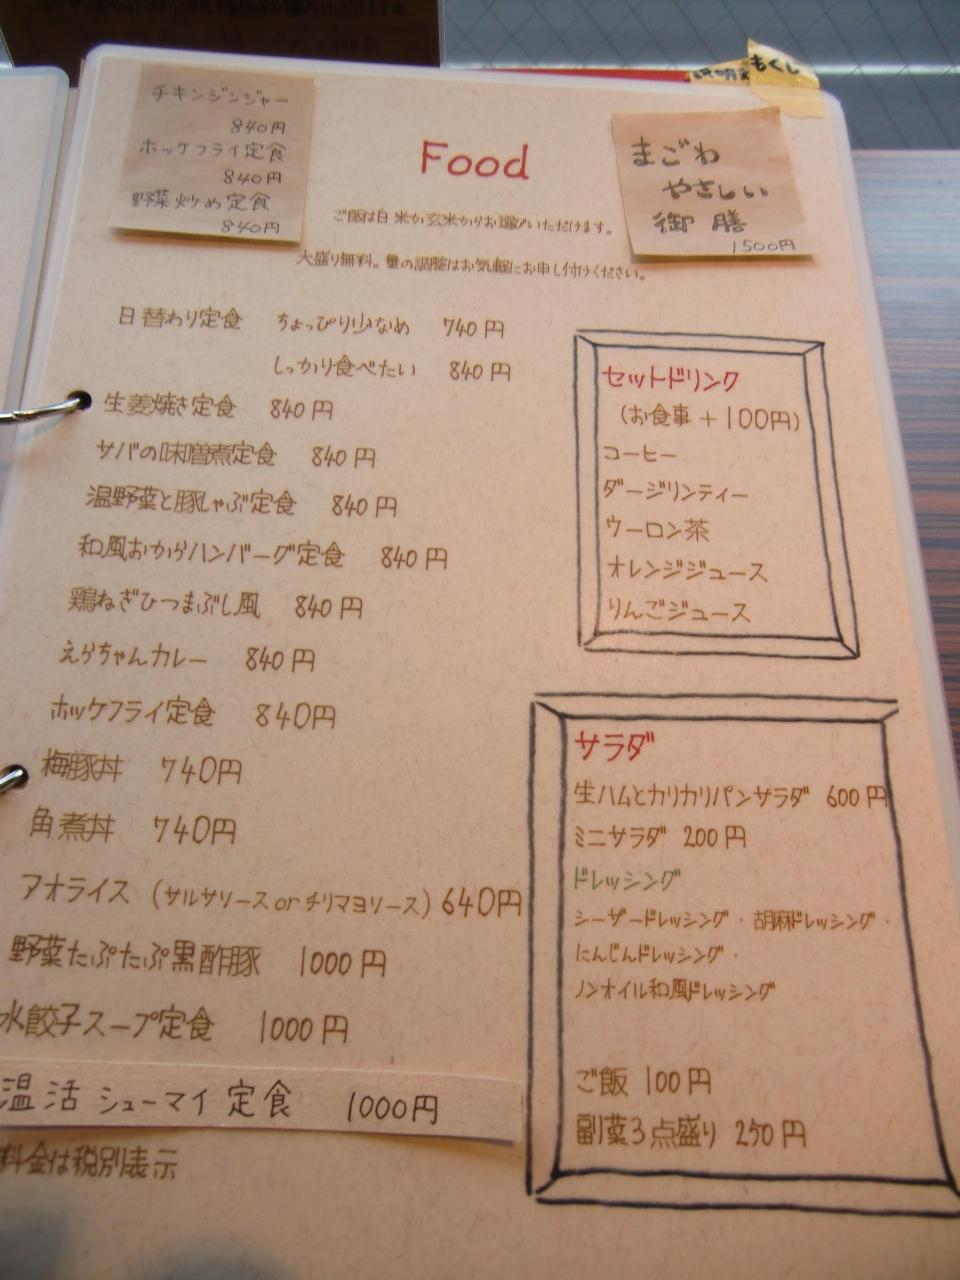 もくじ
チキンジンジャー
840円
ホッケフライ定食
840円
野菜炒め定食
840円
Food
まごわ
やさしい
御膳
1500円
ご飯は白米か玄米からお選びいただけます。
大盛り無料。量の調整はお気軽にお申し付けください。
日替わり定食 ちょっぴり少なめ 740円
しっかり食べたい 840円
生姜焼き定食 840円
サバの味噌煮定食 840円
温野菜と豚しゃぶ定食 840円
和風おからハンバーグ定食 840円
鶏ねぎひつまぶし風 840円
えらちゃんカレー 840円
ホッケフライ定食 840円
梅豚丼 740円
角煮丼 740円
アオライス (サルサソース or チリマヨソース) 640円
野菜たぷたぷ黒酢豚 1000円
水餃子スープ定食 1000円
温活シューマイ定食 1000円
料金は税別表示
セットドリンク
(お食事+100円)
コーヒー
ダージリンティー
ウーロン茶
オレンジジュース
りんごジュース
サラダ
生ハムとカリカリパンサラダ 600円
ミニサラダ 200円
ドレッシング
シーザードレッシング・胡麻ドレッシング・
にんじんドレッシング・
ノンオイル和風ドレッシング
ご飯 100円
副菜3点盛り 250円